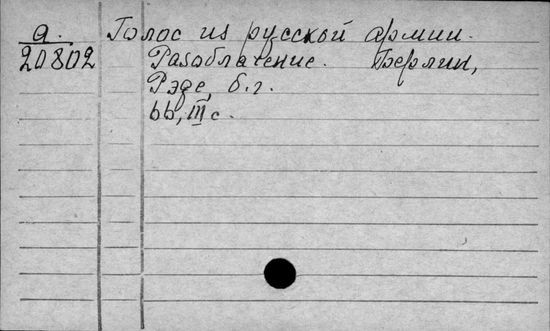 а. Голос из русской армии.
20802 Разоблачение. Берлин,
Рэде, б.г.
66, III с.